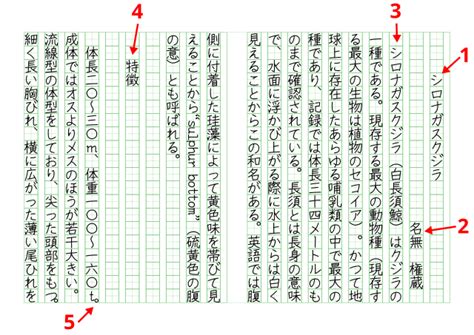 4
3
1
シロナガスクジラ
2
名無 権蔵
シロナガスクジラ（白長須鯨）はクジラの
一種である。現存する最大の動物種（現存す
る最大の生物は植物のセコイア）。かつて地
球上に存在したあらゆる哺乳類の中で最大の
種であり、記録では体長三十四メートルのも
のまで確認されている。長須とは長身の意味
で、水面に浮かび上がる際に水上からは白く
見えることからこの和名がある。英語では腹
側に付着した珪藻によって黄色味を帯びて見
えることから“sulphur bottom”（硫黄色の腹
の意）とも呼ばれる。
特徴
体長二〇～三〇m、体重一〇〇～一六〇t。
成体ではオスよりメスのほうが若干大きい。
流線型の体型をしており、尖った頭部をもつ。
細く長い胸びれ、横に広がった薄い尾ひれを
5